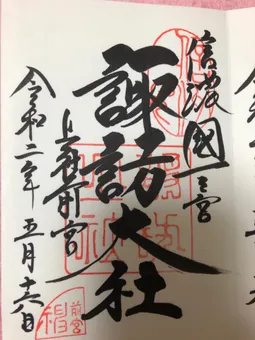 信濃國一之宮
諏訪大社
上社前宮
令和二年五月十六日
前宮